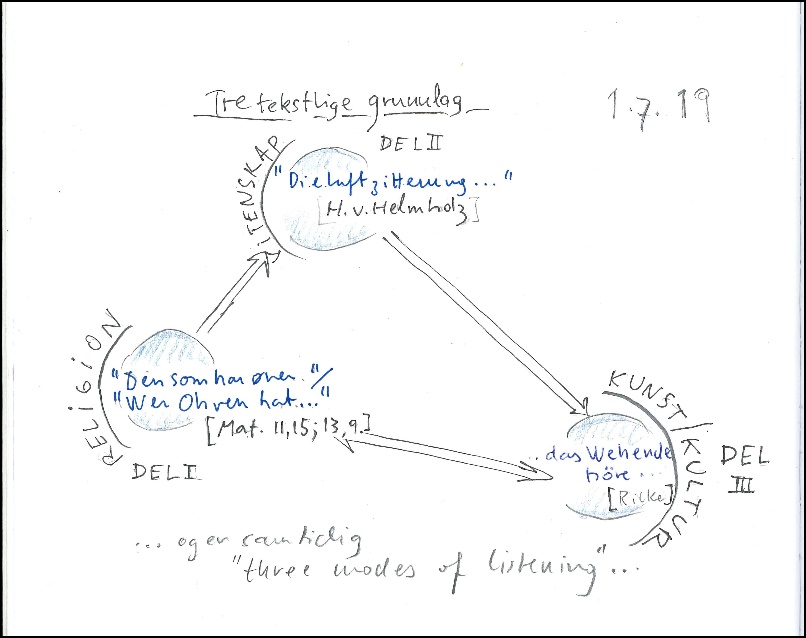 Tre tekstlige grunnlag
1.7.19
DEL II
VITENSKAP
"Die Luftzitterung..."
[H. v. Helmholz]
RELIGION
"Den som har ører."/
"Wer Ohren hat..."
[Mat. 11,15; 13,9.]
DEL I
KUNST/KULTUR
..das Wehende
höre...
[Rilke]
DEL
III
... og er samtidig
"three modes of listening"...